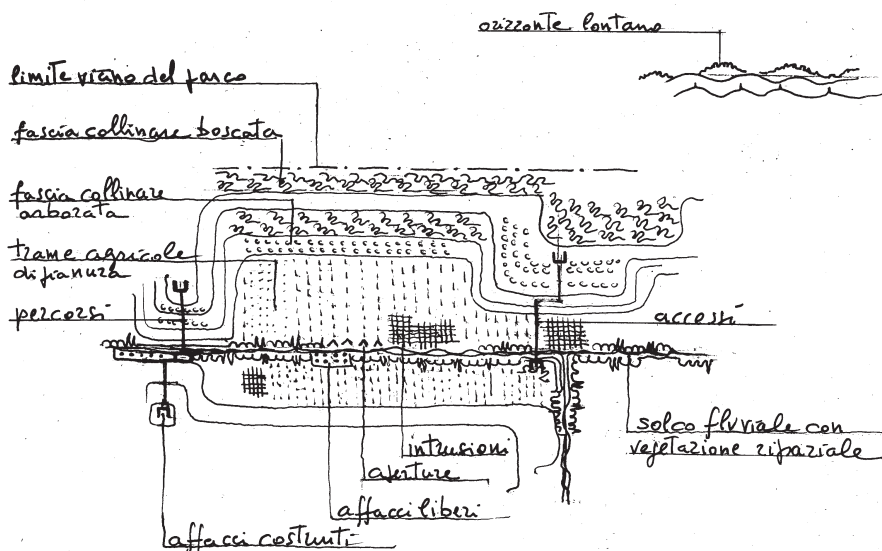 orizzonte lontano
limite viano del parco
fascia collinare boscata
fascia collinare
arborata
trame agricole
di pianura
percorsi
accessi
solco fluviale con
vegetazione ripariale
intrusioni
aperture
affacci liberi
affacci costruiti